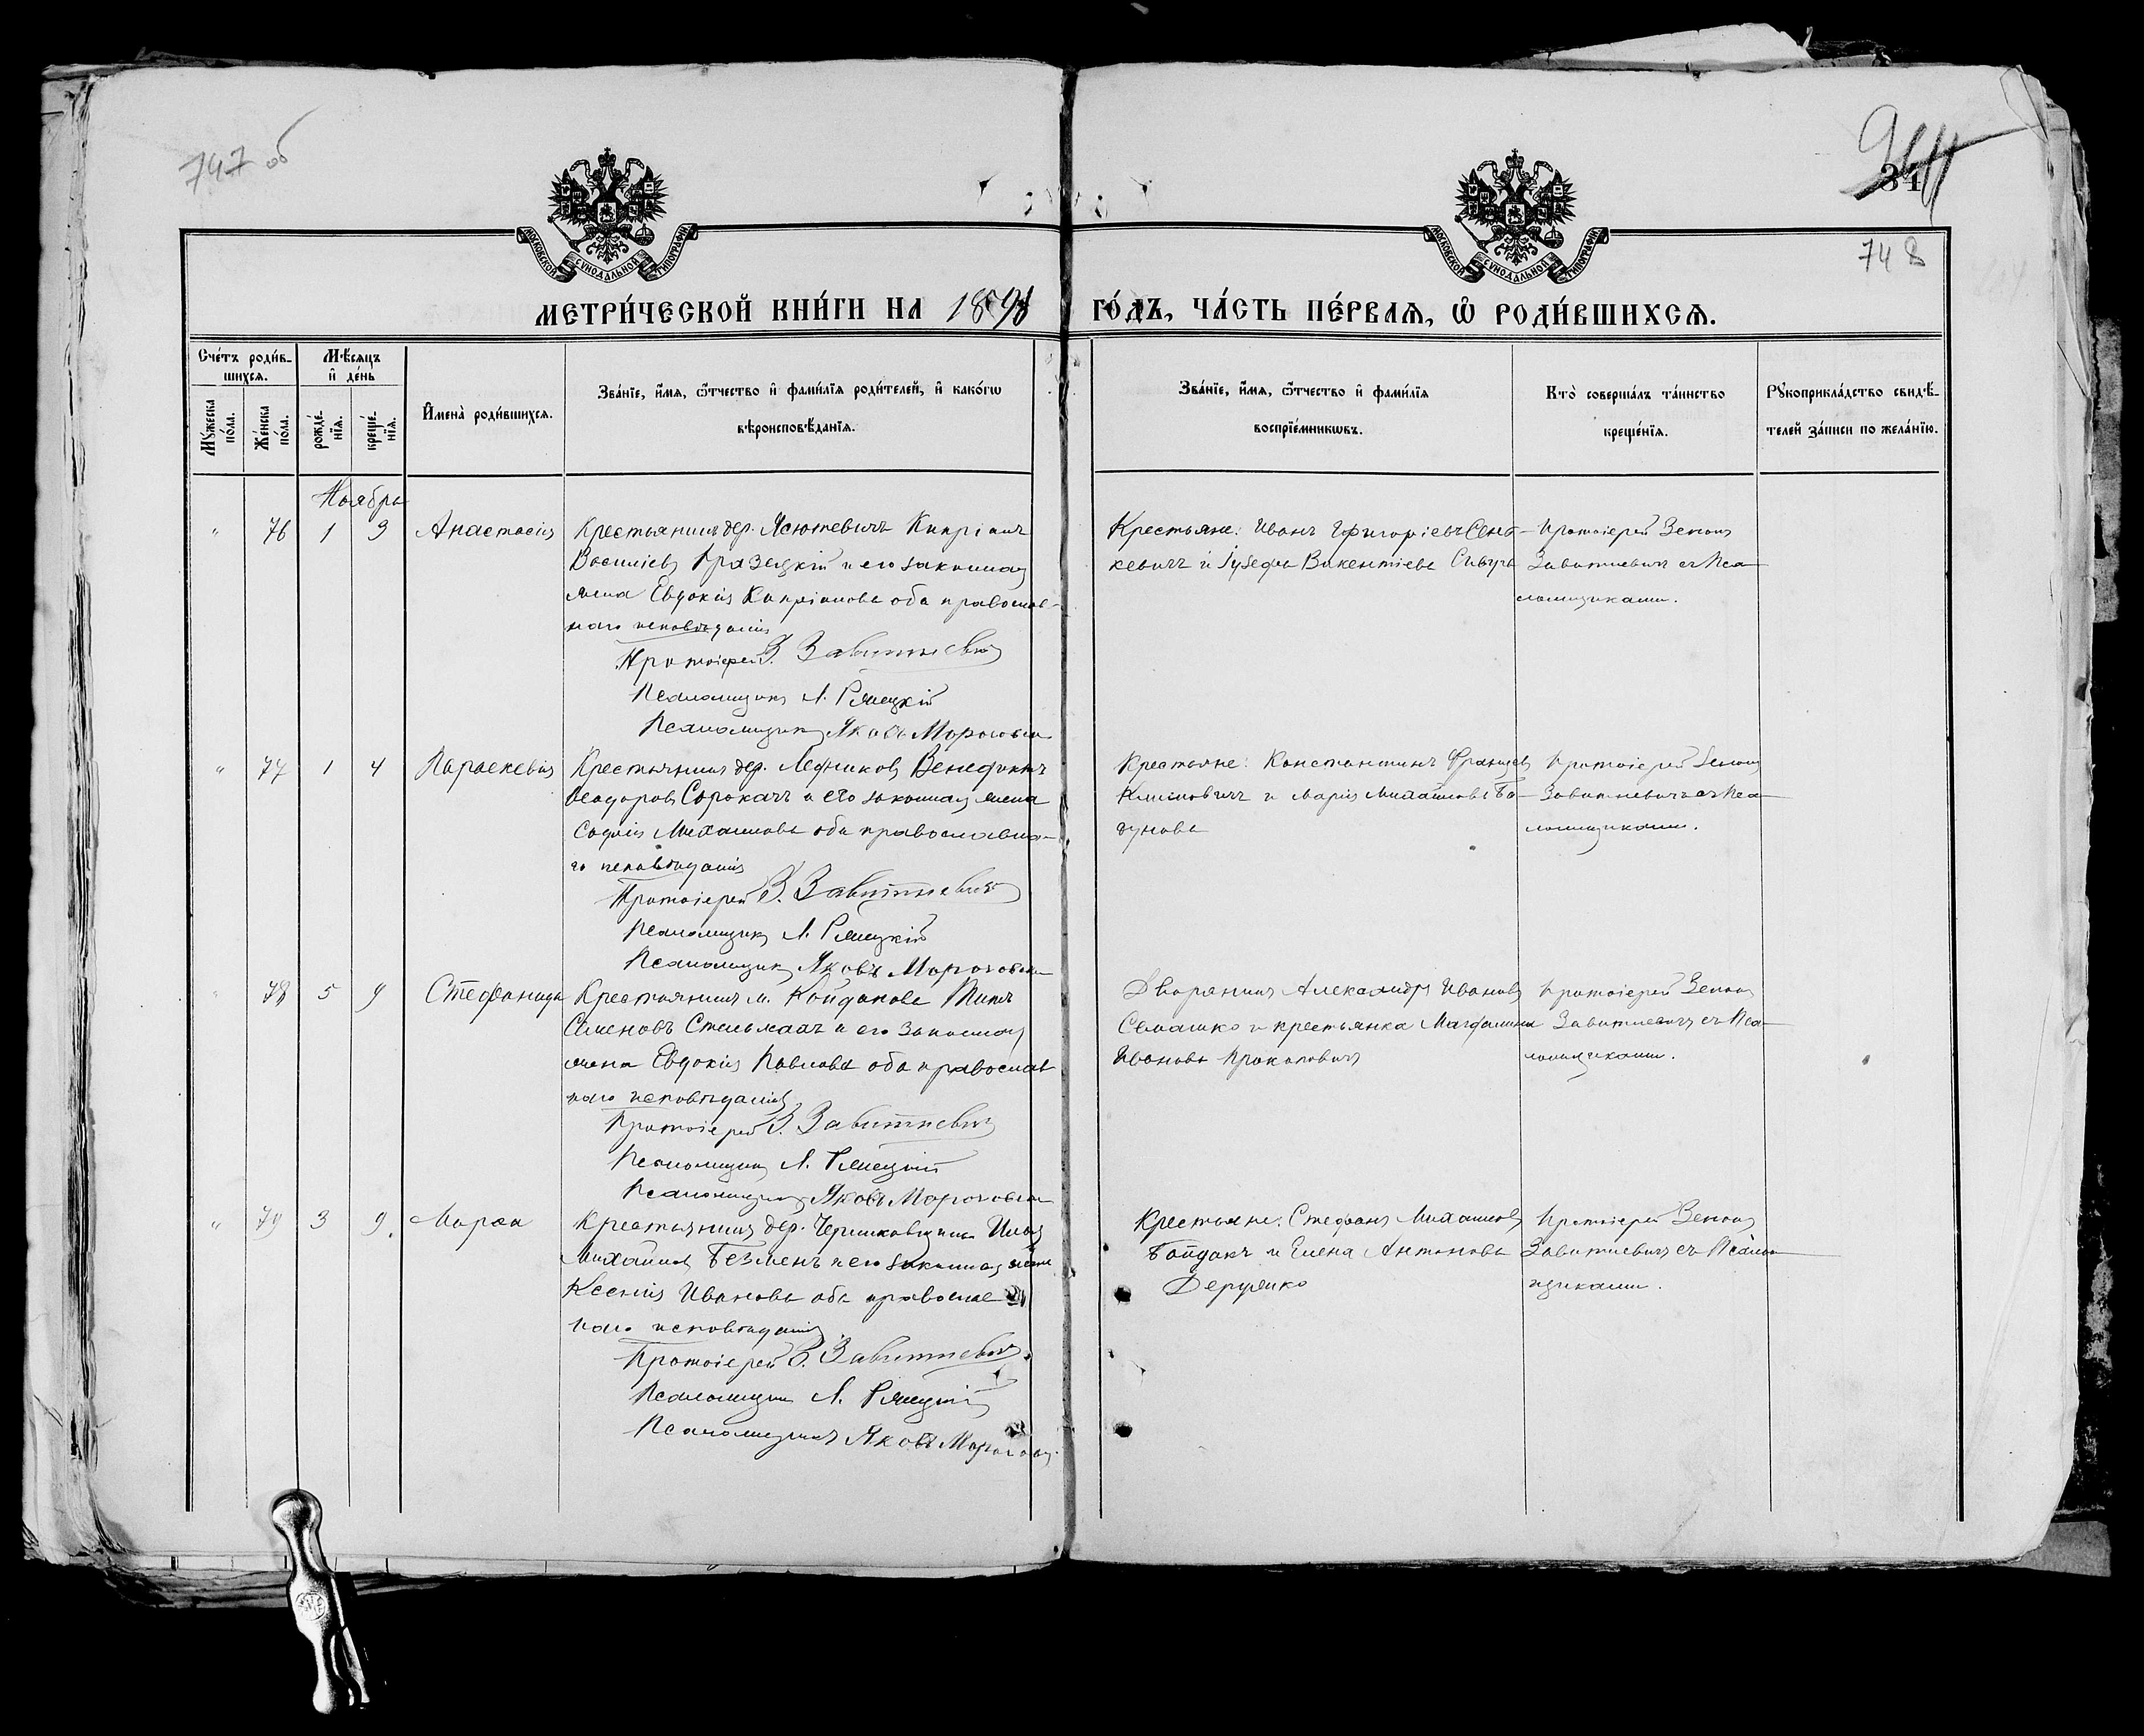 747 об
34
748
МОСКОВСКОЙ СУНОДАЛЬНОЙ ТИПОГРАФІИ
МОСКОВСКОЙ СУНОДАЛЬНОЙ ТИПОГРАФІИ
МЕТРИ́ЧЕСКОЙ КНИ́ГИ НА 1898 ГО́ДЪ, ЧА́СТЬ ПЕ́РВАѦ, Ѡ РОДИ́ВШИХСѦ.
Сче́тъ роди́в-
шихся.
Мѣ́сяцъ
и де́нь
Мꙋ́жеска по́ла.
Же́нска по́ла.
рожде́-нїя.
креще́-нїя.
Имена̀ роди́вшихся.
Зва́нїе, и́мя, ѻ҆́тчество и фами́лїя роди́телей, и како́гѡ
вѣроисповѣ́данїя.
Зва́нїе, и́мя, ѻ҆́тчество и фами́лїя
воспрїе́мникѡвъ.
Кто̀ соверша́лъ та́инство
креще́нїя.
Рꙋкоприкла́дство свидѣ́-
телей за́писи по жела́нїю.
Ноябрь
" 76 1 3 Анастасія
Крестьянинъ дер. Ясютевичъ Кипріанъ
Василіевъ и его законная
жена Евдокія Кипріанова оба православ-
наго исповѣданія
Протоіерей З. Завитневичъ
Псаломщикъ Л.
Псаломщикъ Яковъ
Крестьяне: Иванъ Григоріевъ Сен-
кевичъ и Іузефа Викентіева
Протоіерей Зенонъ
Завитневичъ съ Пса-
ломщиками.
" 77 1 4 Параскевія
Крестьянинъ дер. Ледниковъ Венедиктъ
Ѳеодоровъ Сорокачъ и его законная жена
Софія Михаилова оба православна-
го исповѣданія
Протоіерей З. Завитневичъ
Псаломщикъ Л.
Псаломщикъ Яковъ
Крестьяне: Константинъ Францевъ
Климовичъ и Марія Михайлова Ба-
дунова
Протоіерей Зенонъ
Завитневичъ съ Пса-
ломщиками.
" 78 5 9 Стефанида
Крестьянинъ м. Койданова Титъ
Семеновъ Стельмахъ и его законная
жена Евдокія Павлова оба православ
наго исповѣданія
Протоіерей З. Завитневичъ
Псаломщикъ Л.
Псаломщикъ Яковъ
Дворянинъ Александръ Ивановъ
Семашко и крестьянка Магдалина
Иванова Прокоповичъ
Протоіерей Зенонъ
Завитневичъ съ Пса-
ломщиками.
" 79 3 9. Марѳа
Крестьянинъ дер. Илья
Михайловъ Безменъ и его законная жена
Ксенія Иванова оба православ
наго исповѣданія
Протоіерей З. Завитневичъ.
Псаломщикъ Л.
Псаломщикъ Яковъ
Крестьяне: Стефанъ Михаиловъ
Байдакъ и Елена Антонова
Протоіерей Зенонъ
Завитневичъ съ Псалом
щиками.